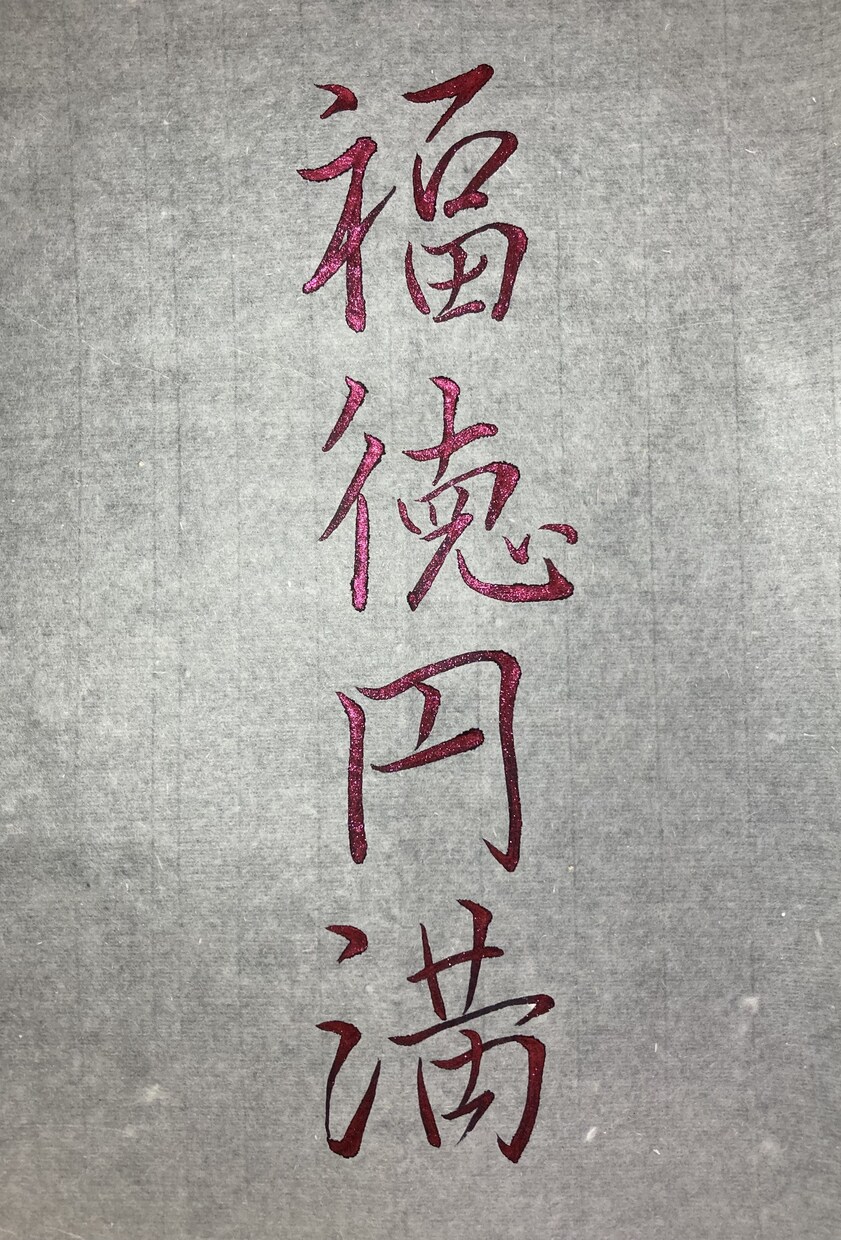 福徳円満